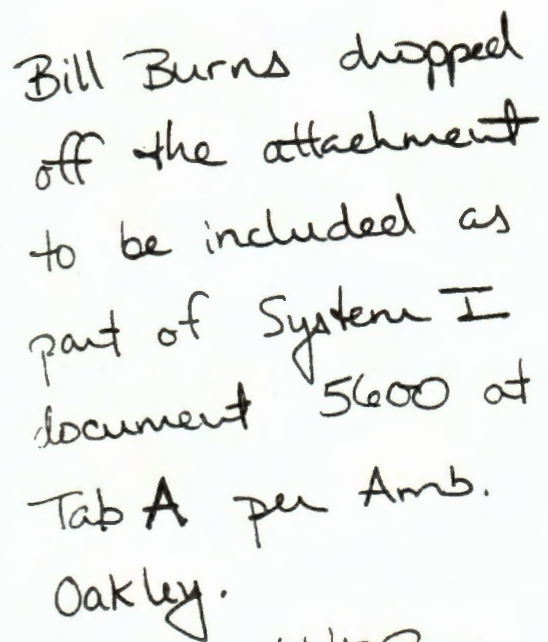 Bill Burns dropped
off the attachment
to be included as
part of System I
document 5600 at
Tab A per Amb.
Oakley.